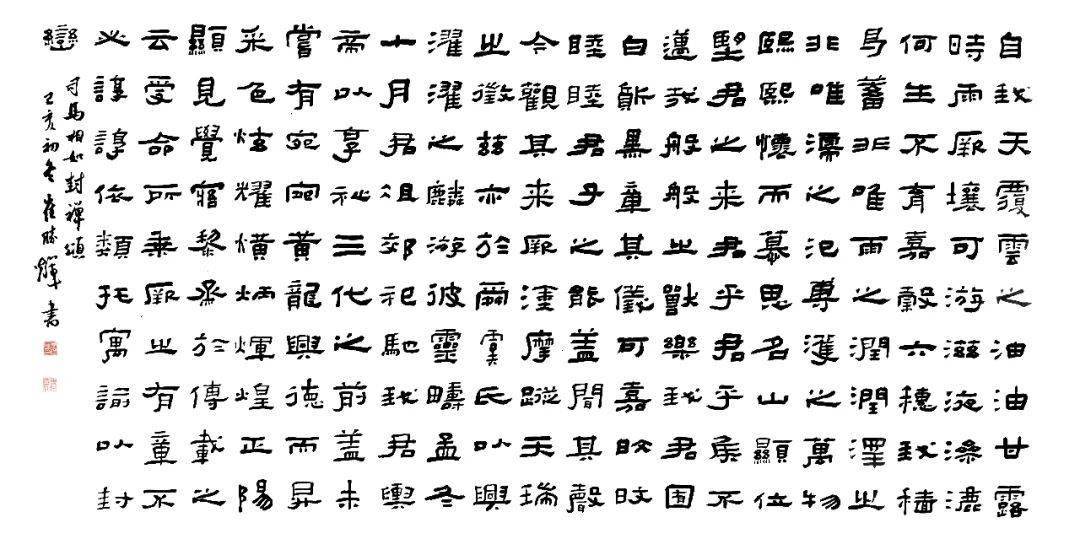 自我天覆雲之油油甘露
時雨厥壤可游滋液滲漉
何生不育嘉穀六穗我穡
曷蓄非唯雨之潤潤澤之
非唯濡之氾尃濩之萬物
熙熙懷而慕思名山顯位
聖君之来君乎君乎侯不
邁我般般之獸樂我君囿
白質黑章其儀可嘉旼旼
睦睦君子之能蓋聞其聲
今觀其来厥塗摩蹤天瑞
之徵茲亦於爾虞氏以興
濯濯之麟游彼靈疇孟冬
十月君徂郊祀馳我君輿
帝以享祉三代之前蓋未
嘗有宛宛黃龍興德而昇
采色炫耀熿炳煇煌正陽
顯見覺寤黎烝於傳載之
云受命所乘厥之有章不
必諄諄依類托寓諭以封
巒
司馬相如封禪頌
己亥初冬崔勝輝書